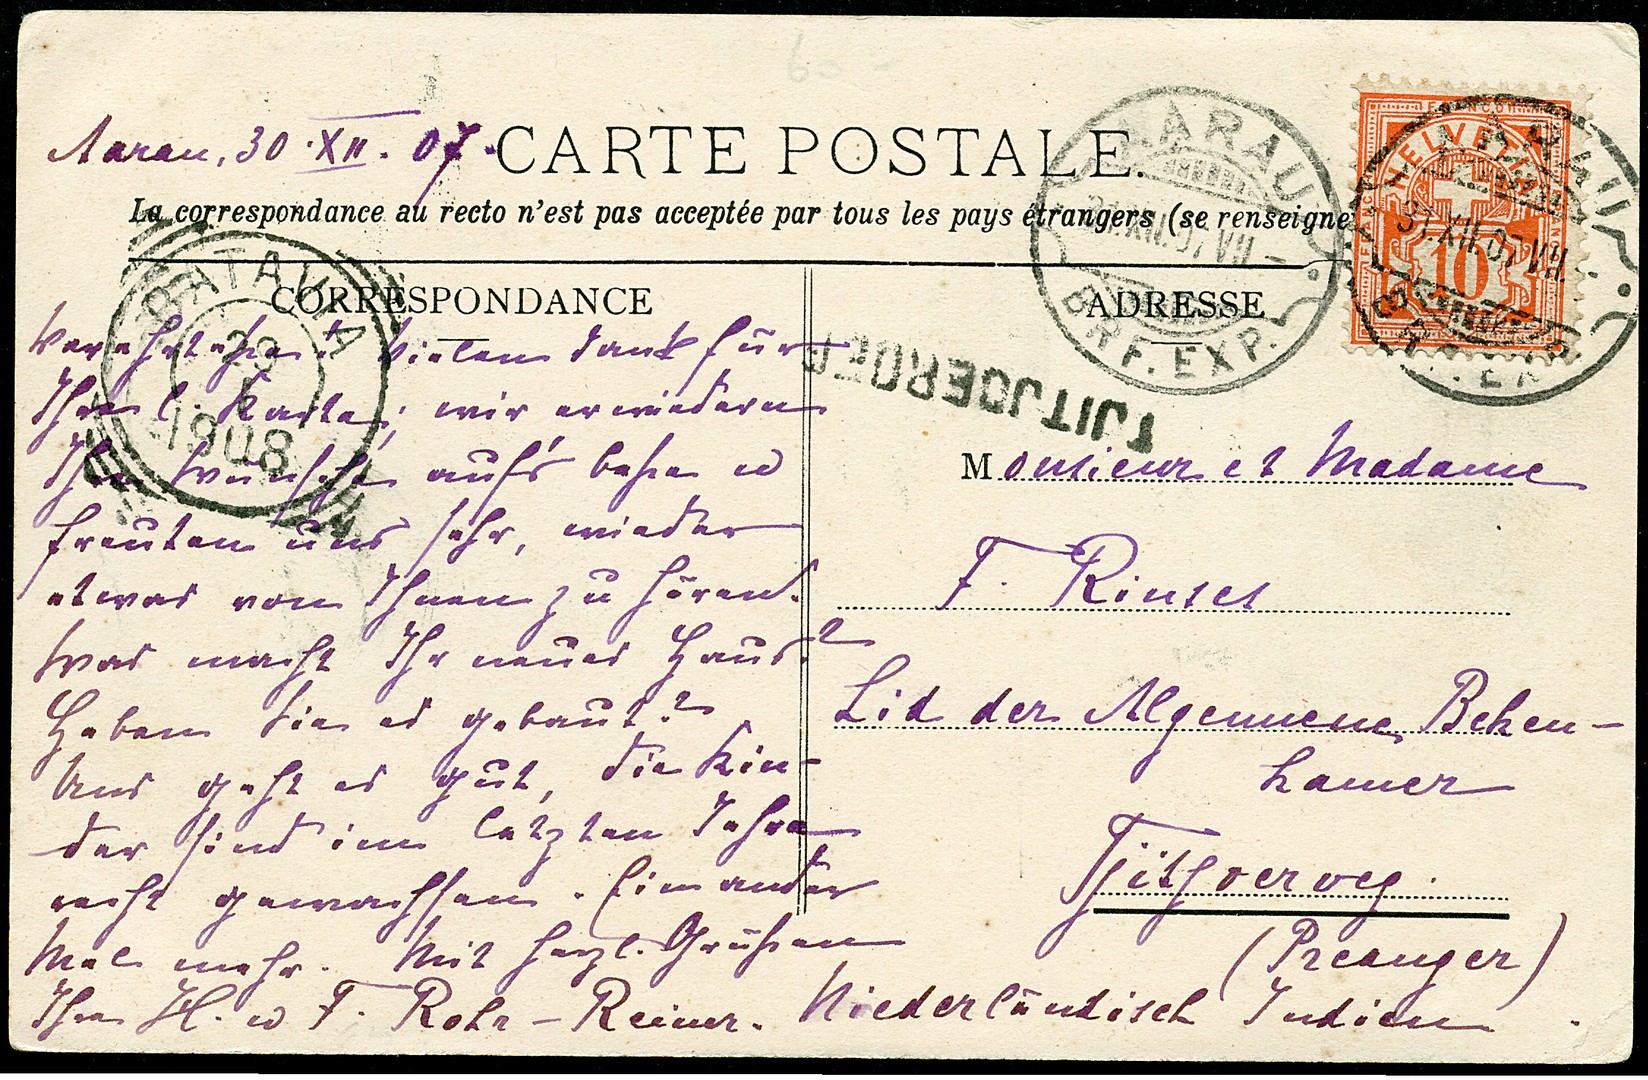 Aarau, 30.XII.07.
CARTE POSTALE.
La correspondance au recto n'est pas acceptée par tous les pays étrangers (se renseigne
CORRESPONDANCE
ADRESSE
AARAU
31.XII.07.VII
BRF. EXP.
FRANCO
HELVETIA
10
AARAU
31.XII.07.VII.
BATAVIA
1908
TJITJOEROEG
Verehrteste! Vielen Dank für
Ihre l. Karte; wir erwiedern
Ihre Wünsche auf's beste u
freuten uns sehr, wieder
etwas von Ihnen zu hören.
Was macht Ihr neues Haus?
Haben Sie es gebaut?
Uns geht es gut, die Kin-
der sind im letzten Jahre
recht gewachsen. Ein ander
Mal mehr. Mit herzl. Grüßen
Ihre H. u F. Rohr-Reiner.
Monsieur et Madame
F. Rinses
Lid der Algemeene Reken-
kamer
Tjitjoeroeg.
(Preanger)
Niederländisch Indien.